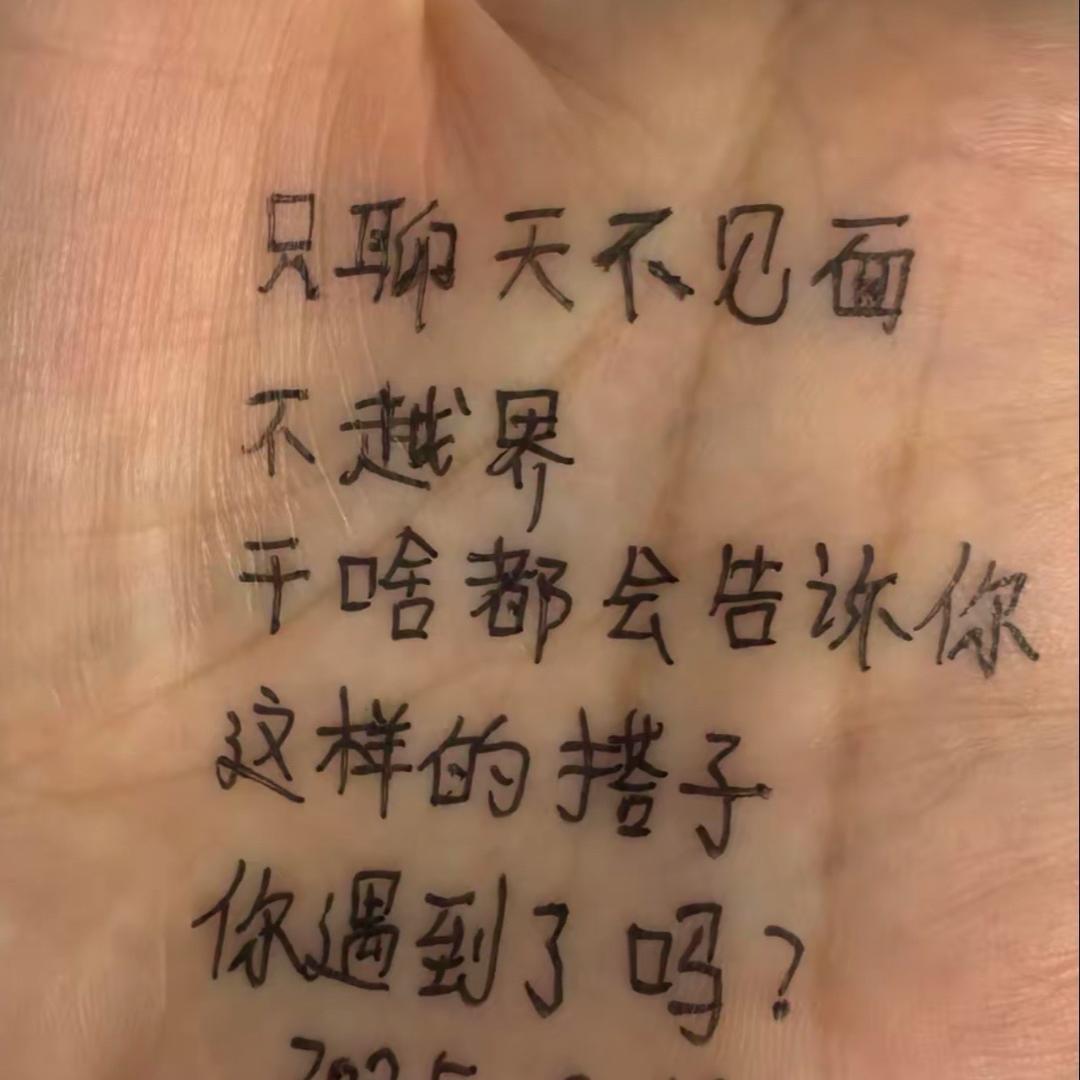 只聊天不见面
不越界
干啥都会告诉你
这样的搭子
你遇到了吗？
2025